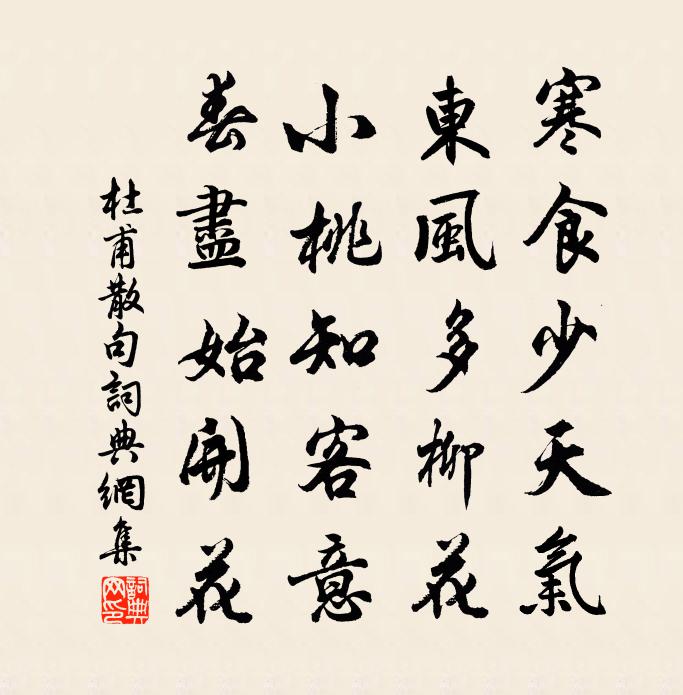 寒食少天氣
東風多柳花
小桃知客意
春盡始開花
杜甫散句詞典網集
詞典網印